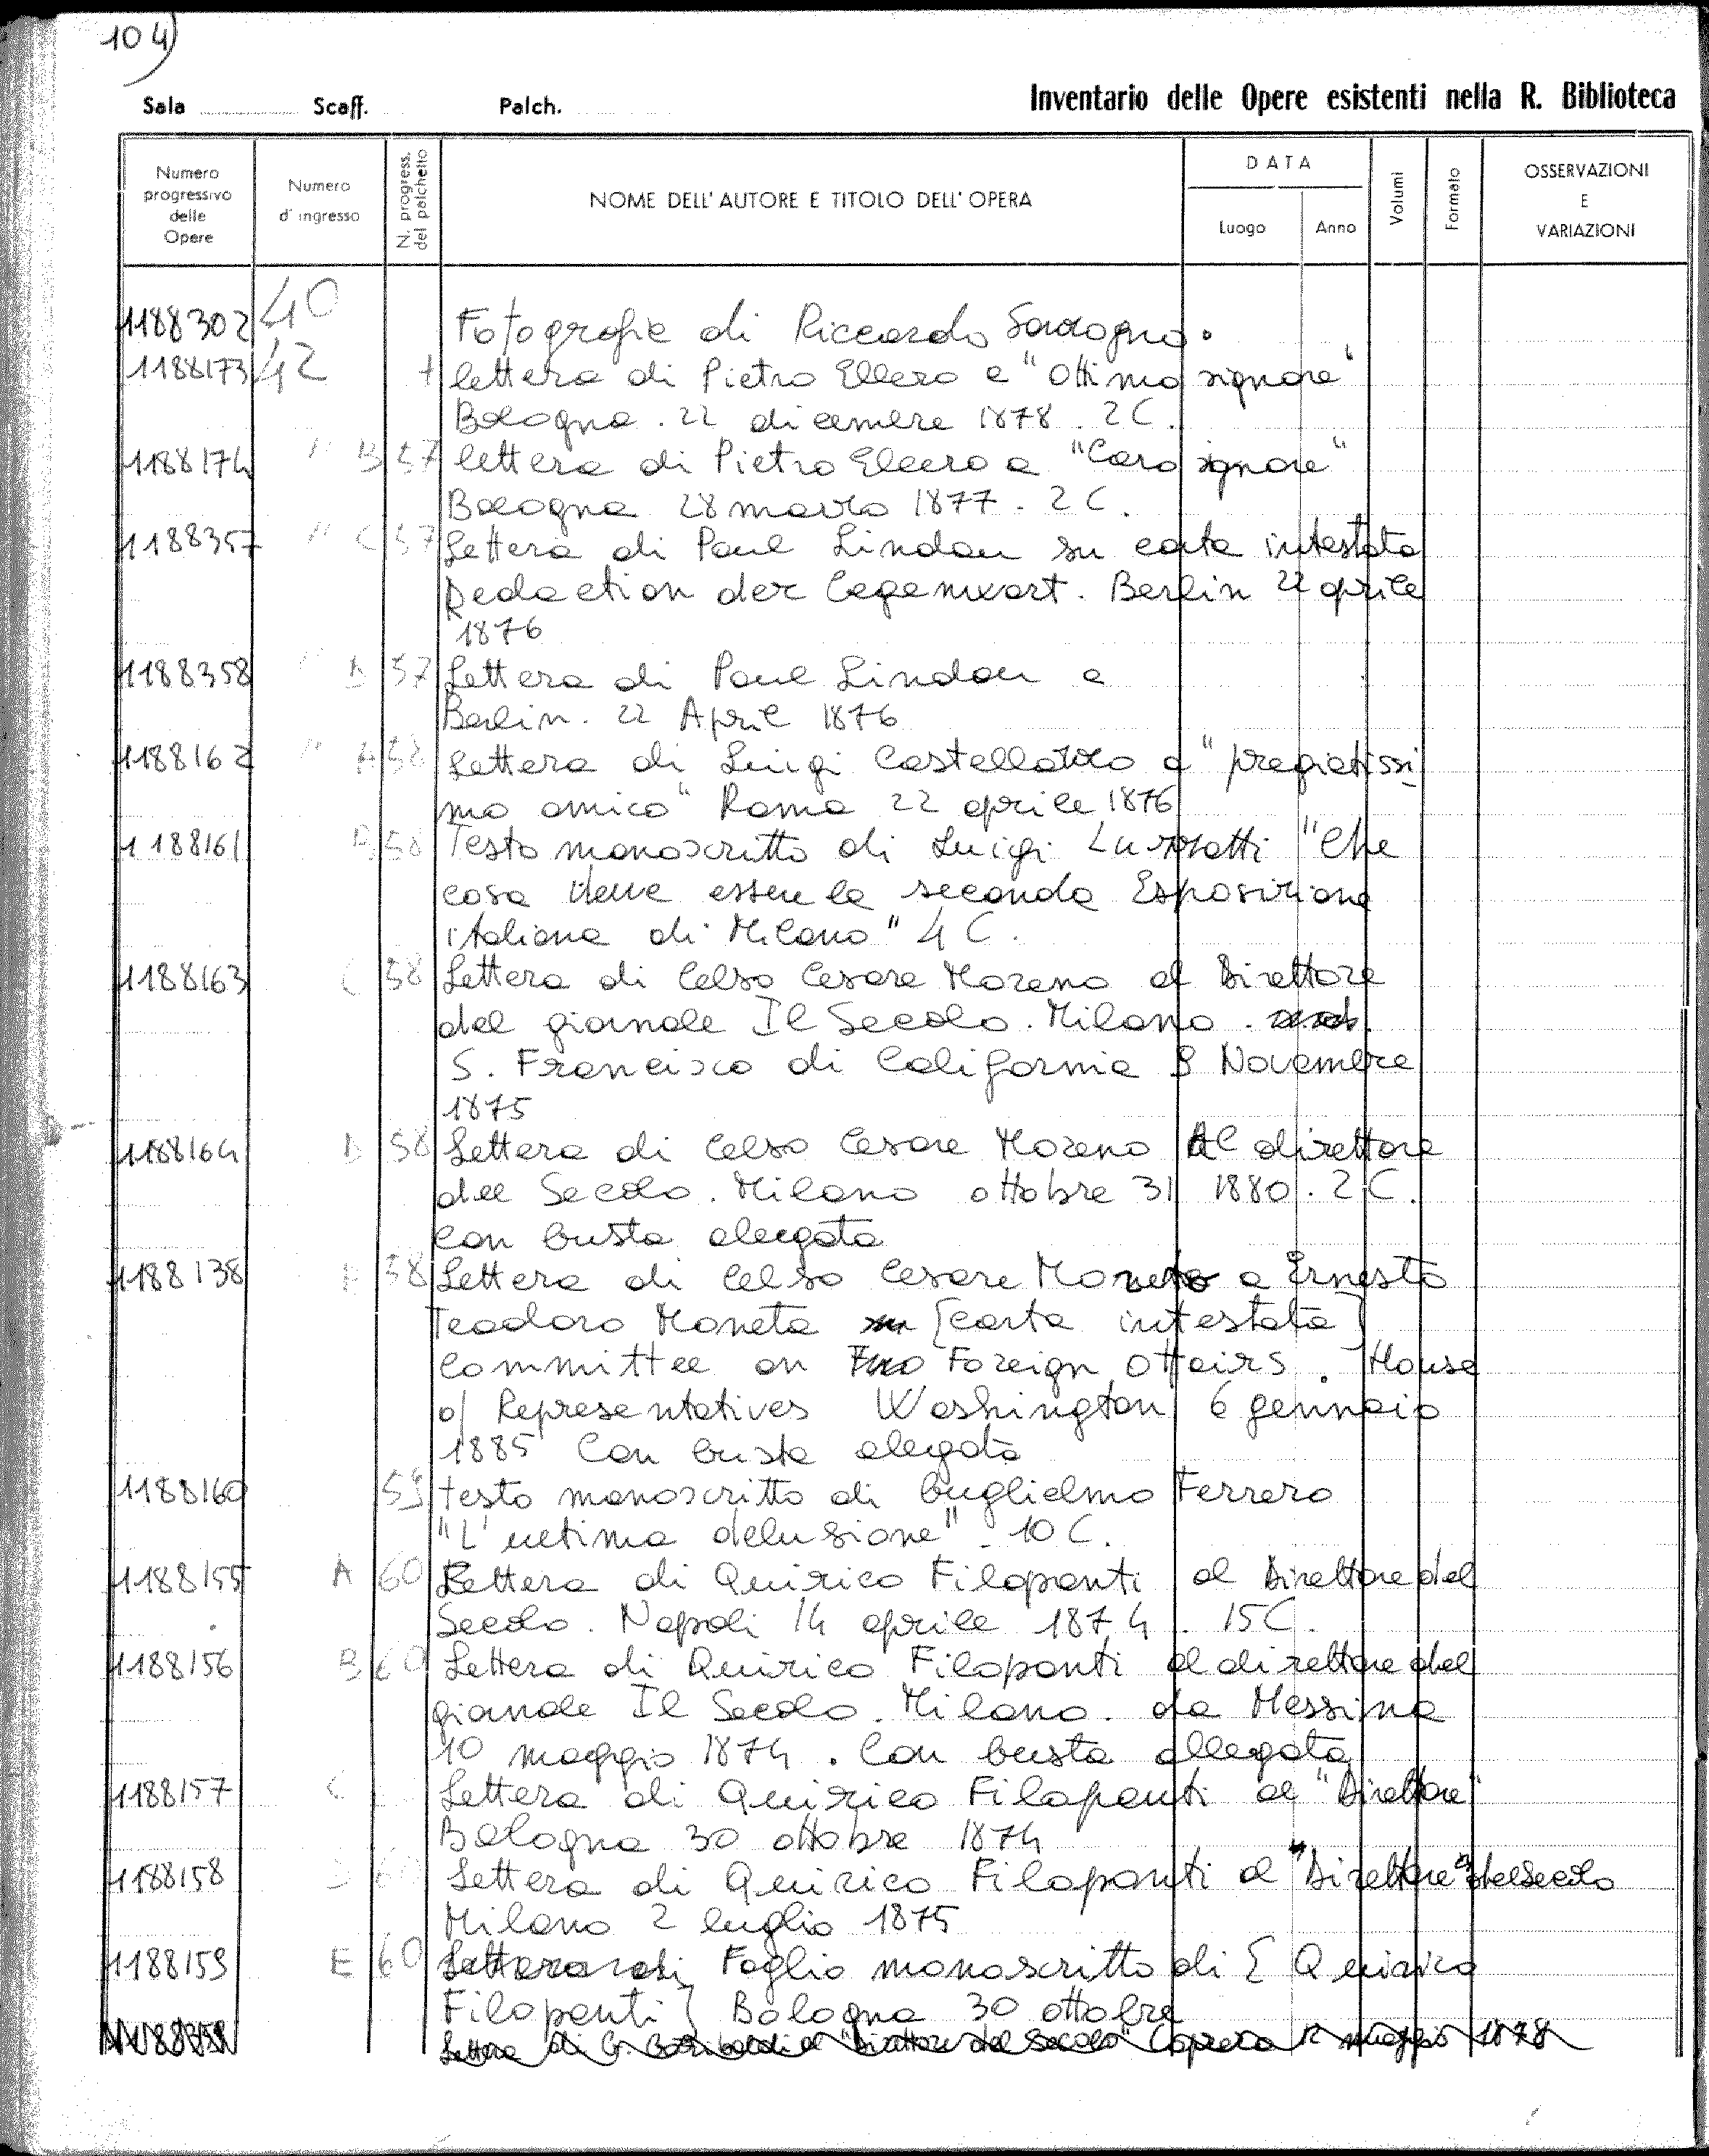 104)
Sala Scaff. Palch. Inventario delle Opere esistenti nella R. Biblioteca
Numero progressivo delle Opere
Numero d'ingresso
N. progress. del palchetto
NOME DELL'AUTORE E TITOLO DELL'OPERA
DATA
Luogo Anno
Volumi
Formato
OSSERVAZIONI E VARIAZIONI
1188302 40 Fotografie di Riccardo
1188173 42 + lettera di Pietro Ellero a "Ottimo signore"
Bologna. 22 dicembre 1878. 2 C.
1188174 " B 57 lettera di Pietro Ellero a "Caro signore"
Bologna 28 marzo 1877. 2 C.
1188357 " C 57 Lettera di Paul Lindau su carta intestata
Redaction der Gegenwart. Berlin 22 aprile
1876
1188358 " D 57 Lettera di Paul Lindau a
Berlin. 22 April 1876
1188162 " A 58 Lettera di Luigi Castellazzo a "pregiatissi
mo amico" Roma 22 aprile 1876
1188161 B 58 Testo manoscritto di Luigi Luzzatti "Che
cosa deve essere la seconda Esposizione
italiana di Milano" 4 C.
1188163 C 58 Lettera di Celso Cesare Moreno al Direttore
del giornale Il Secolo. Milano.
S. Francisco di California 8 Novembre
1875
1188164 D 58 Lettera di Celso Cesare Moreno Al direttore
del Secolo. Milano ottobre 31 1880. 2 C.
Con busta allegata
1188138 E 58 Lettera di Celso Cesare a Ernesto
Teodoro Moneta [carta intestata]
Committee on Foreign Affairs. House
of Representatives Washington 6 gennaio
1885 Con busta allegata
1188160 59 testo manoscritto di Guglielmo Ferrero
"L'ultima delusione". 10 C.
1188155 A 60 Lettera di Quirico Filopanti al Direttore del
Secolo. Napoli 14 aprile 1874. 15 C.
1188156 B 60 Lettera di Quirico Filopanti al direttore del
giornale Il Secolo. Milano. da Messina
10 maggio 1874. Con busta allegata
1188157 C Lettera di Quirico Filopanti al "Direttore"
Bologna 30 ottobre 1874
1188158 D 60 Lettera di Quirico Filopanti al "Direttore" del Secolo
Milano 2 luglio 1875
1188159 E 60 Lettera di Foglio manoscritto di [Quirico
Filopanti] Bologna 30 ottobre
Lettera di G. Garibaldi al "Direttore del Secolo" Caprera 12 maggio 1878